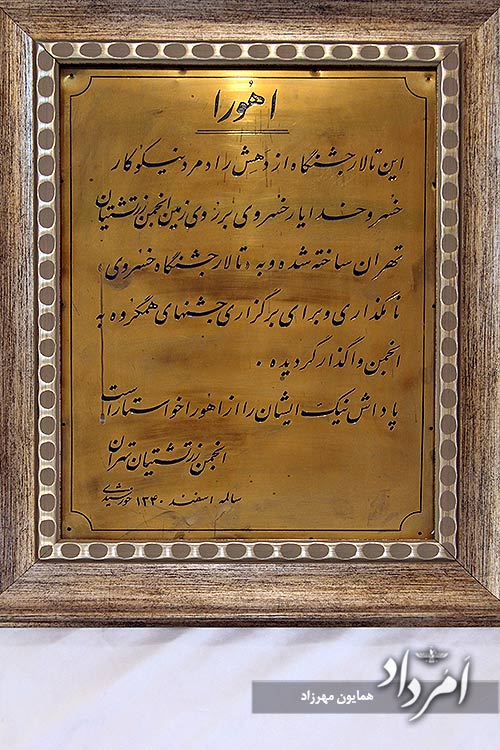 اهورا
این تالار جشنگاه از دهش راد مرد نیکوکار
خسرو خدایار خسروی بر روی زمین انجمن زرتشتیان
تهران ساخته شده و به «تالار جشنگاه خسروی»
نامگذاری و برای برگزاری جشنهای همگروه به
انجمن واگذار گردیده .
پاداش نیک ایشان را از اهورا خواستار است
انجمن زرتشتیان تهران
سالمه اسفند ۱۳۴۰ خورشیدی
اَمُرداد
همایون مهرزاد